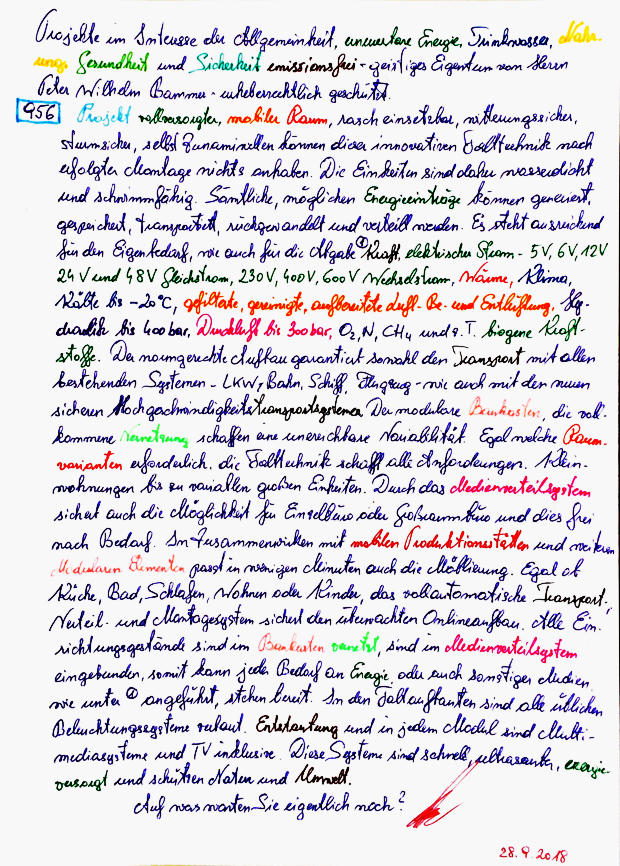 Projekte im Interesse der Allgemeinheit, erneuerbare Energie, Trinkwasser, Nahr-
ung, Gesundheit und Sicherheit emissionsfrei - geistiges Eigentum von Herrn
Peter Wilhelm Bammer - urheberrechtlich geschützt.
956 Projekt vollversorgter, mobiler Raum, rasch einsetzbar, witterungssicher,
sturmsicher, selbst Zunamiwellen können dieser innovativen Falttechnik nach
erfolgter Montage nichts anhaben. Die Einheiten sind daher wasserdicht
und schwimmfähig. Sämtliche, möglichen Energieeinträge können generiert,
gespeichert, transportiert, rückgewandelt und verteilt werden. Es steht ausreichend
für den Eigenbedarf, wie auch für die Abgabe ① Kraft, elektrischer Strom - 5V, 6V, 12V
24V und 48V Gleichstrom, 230V, 400V, 600V Wechselstrom, Wärme, Klima,
Kälte bis -20°C, gefilterte, gereinigte, aufbereitete Luft - Be- und Entlüftung. Hy-
draulik bis 400 bar, Druckluft bis 300 bar, O2, N, CH4 und z.T. biogene Kraft-
stoffe. Der normgerechte Aufbau garantiert sowohl den Transport mit allen
bestehenden Systemen - LKW, Bahn, Schiff, Flugzeug - wie auch mit den neuen
sicheren Hochgeschwindigkeitstransportsystemen. Der modulare Baukasten, die voll-
kommene Vernetzung schaffen eine unerreichbare Variabilität. Egal welche Raum-
varianten erforderlich, die Falttechnik schafft alle Anforderungen. Klein-
wohnungen bis zu variablen großen Einheiten. Durch das Medienverteilsystem
sichert auch die Möglichkeit für Einzelbüro oder Großraumbüro und dies frei
nach Bedarf. Im Zusammenwirken mit mobilen Produktionsstätten und weiteren
Modularen Elementen passt in wenigen Minuten auch die Möblierung. Egal ob
Küche, Bad, Schlafen, Wohnen oder Kinder, das vollautomatische Transport-,
Verteil- und Montagesystem sichert den überwachten Onlineaufbau. Alle Ein-
richtungsgegstände sind im Baukasten vernetzt, sind im Medienverteilsystem
eingebunden, somit kann jeder Bedarf an Energie, oder auch sonstiger Medien,
wie unter ① angeführt, stehen bereit. In den Faltaufbauten sind alle üblichen
Beleuchtungssysteme verbaut. Entstaubung und in jedem Modul sind Multi-
mediasysteme und TV inklusive. Diese Systeme sind schnell, ultrasauber, energie-
versorgt und schützen Natur und Umwelt.
Auf was warten Sie eigentlich noch?
28.9.2018